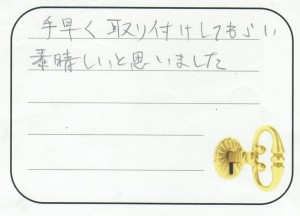 手早く取り付けしてもらい
素晴しいと思いました